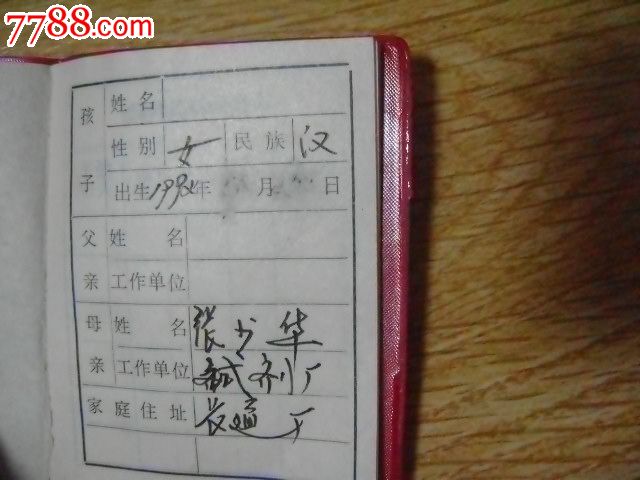 7788.com
孩子 姓名
性别 女 民族 汉
出生 199 年 月 日
父亲 姓名
工作单位
母亲 姓名 张少华
工作单位 试剂厂
家庭住址 长道